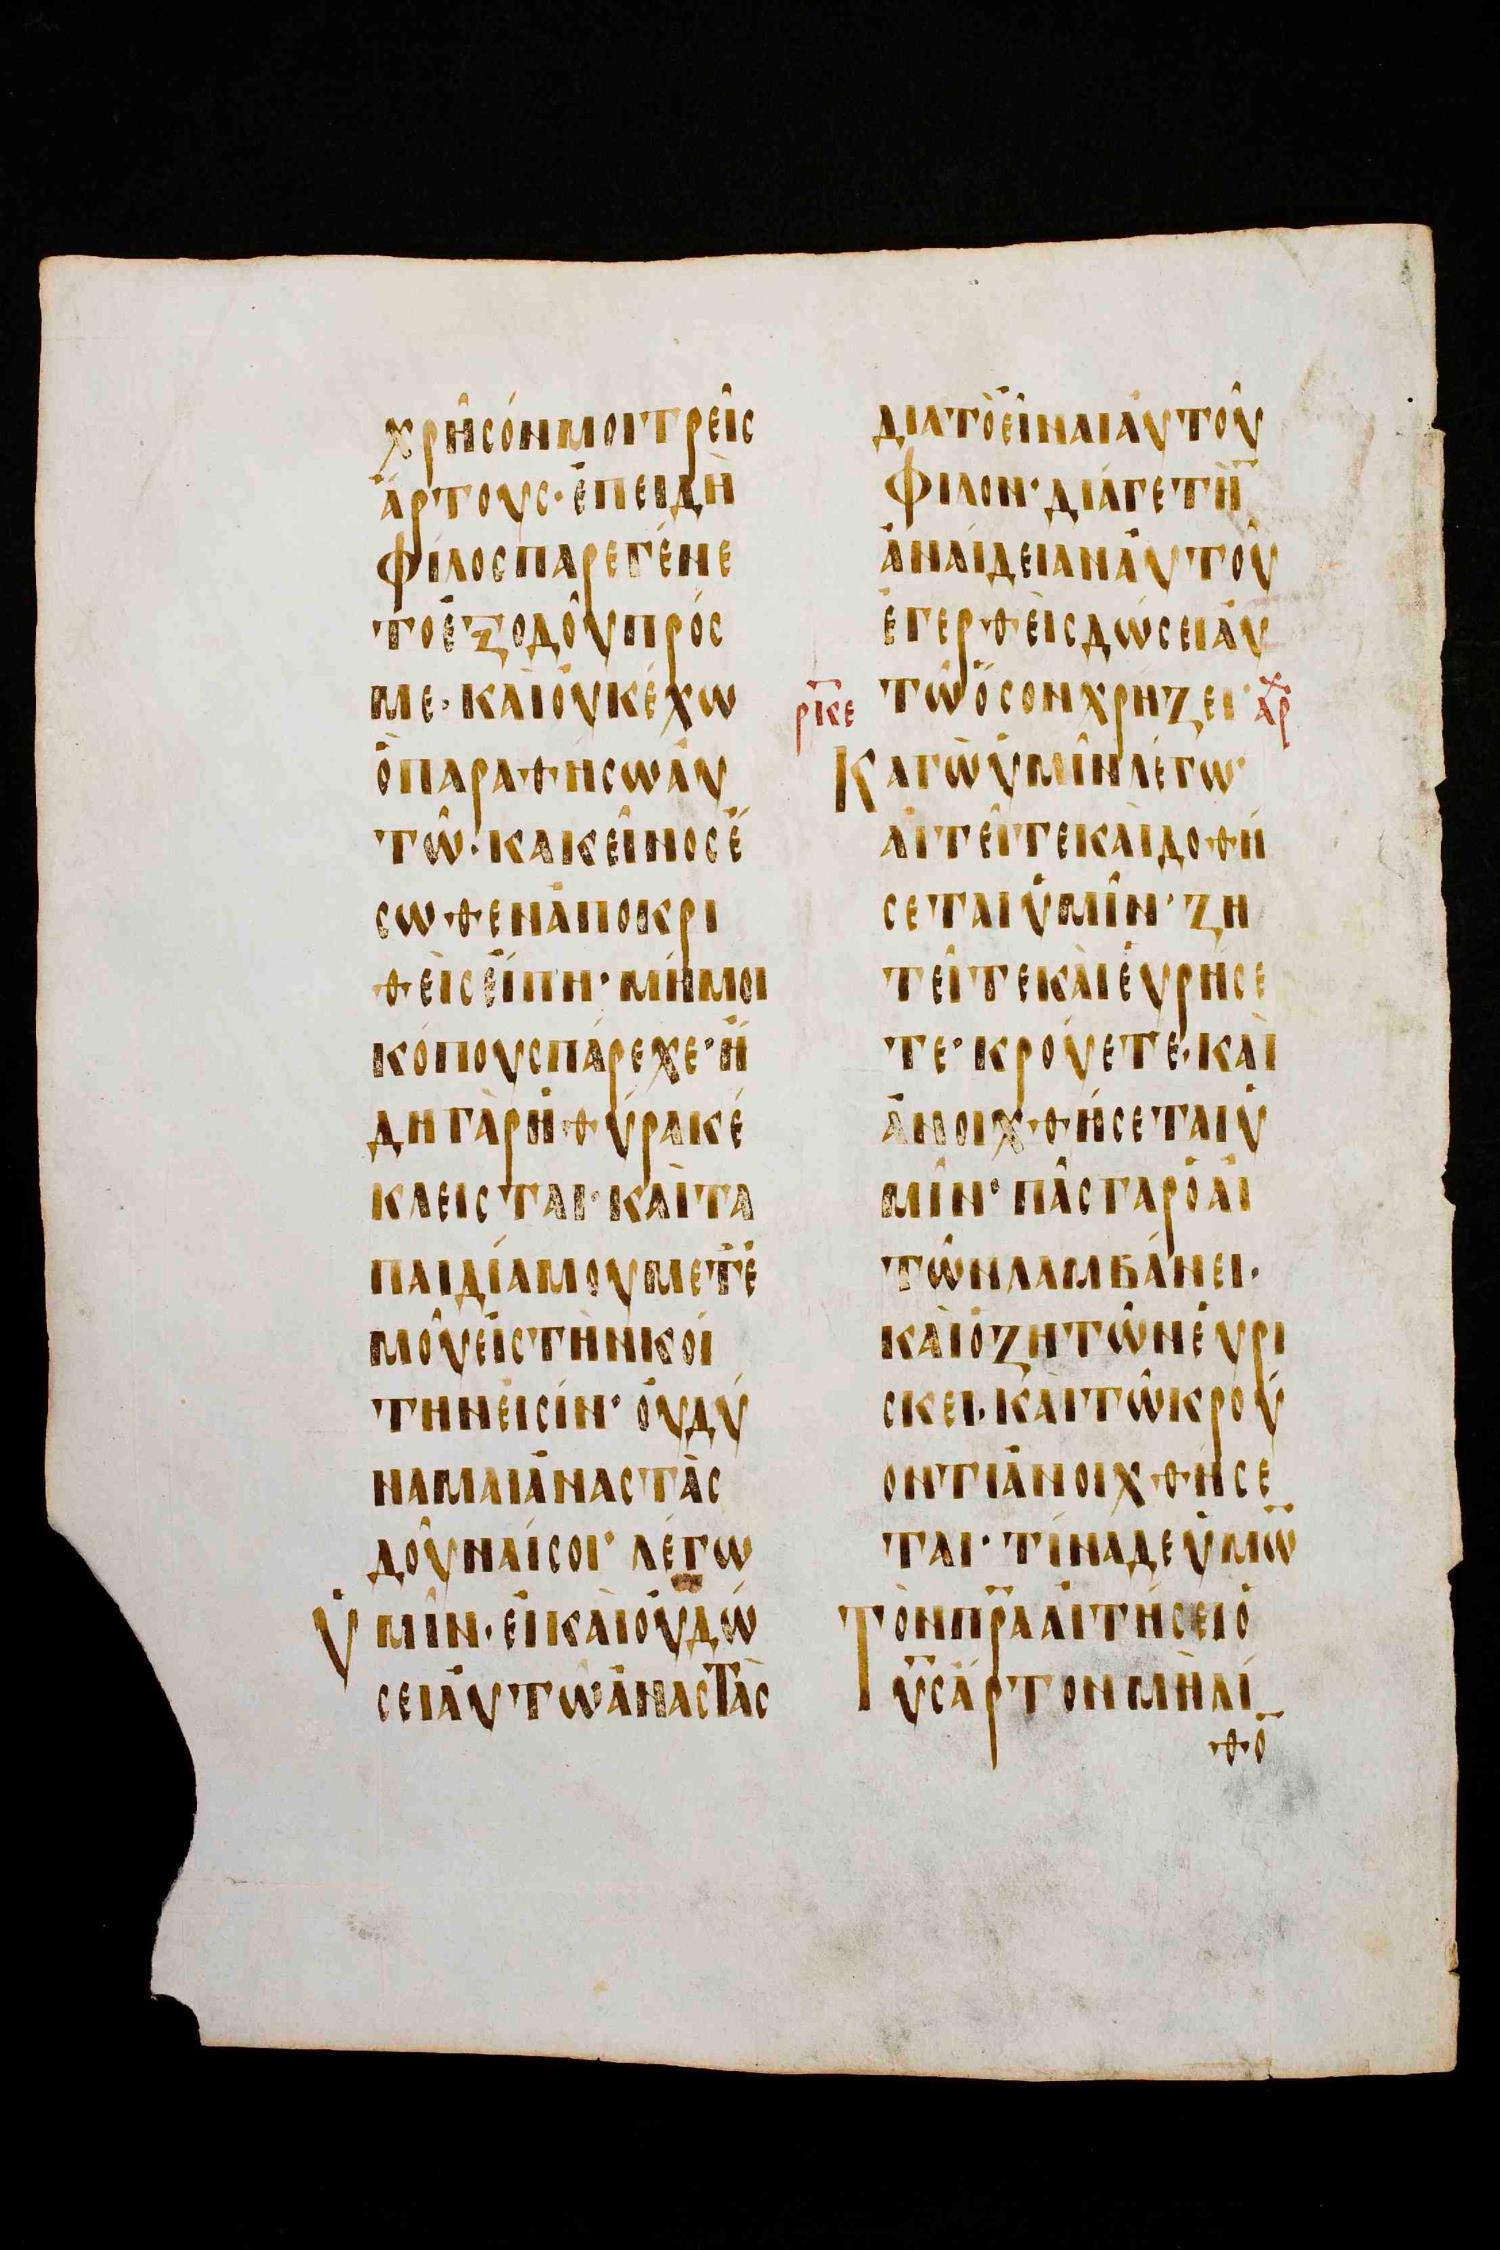 χρῆσόνμοιτρεῖς
ἄρτους·ἐπειδὴ
φίλοςπαρεγένε
τοἐξοδοῦπρός
με·καὶοὐκἔχω
ὃπαραθήσωαὐ
τῷ·κἀκεῖνοςἔ
σωθενἀποκρι
θεὶςεἴπῃ·μήμοι
κόπουςπάρεχε·ἤ
δηγὰρἡθύρακέ
κλεισται·καὶτα
παιδίαμουμετἐ
μοῦεἰςτὴνκοί
τηνεἰσίν·οὐδύ
ναμαιἀναστὰς
δοῦναίσοι·λέγω
ὑμῖν·εἰκαὶοὐδώ
σειαὐτῶἀναστὰς
διὰτὸεἶναιαὐτοῦ
φίλον·διάγετὴ̅
ἀναίδειαναὐτοῦ
ἐγερθεὶςδώσειαὐ
τῶὅσονχρήζει·ἀρχ
ρκε
Κἀγὼὑμῖνλέγω·
αἰτεῖτεκαὶδοθή
σεταιὑμῖν·ζη
τεῖτεκαὶεὑρήσε
τε·κρούετε·καὶ
ἀνοιχθήσεταιὑ
μῖν·πᾶςγαρὁαἰ
τῶνλαμβάνει·
καὶὁζητῶνεὑρί
σκει·καὶτῶκρού
οντιἀνοιχθήσε
ται·τίναδεὑμῶ̅
Τὸνπ̅ρ̅ααἰτήσειὁ
υ̅ςἄρτονμὴλί
θο̅